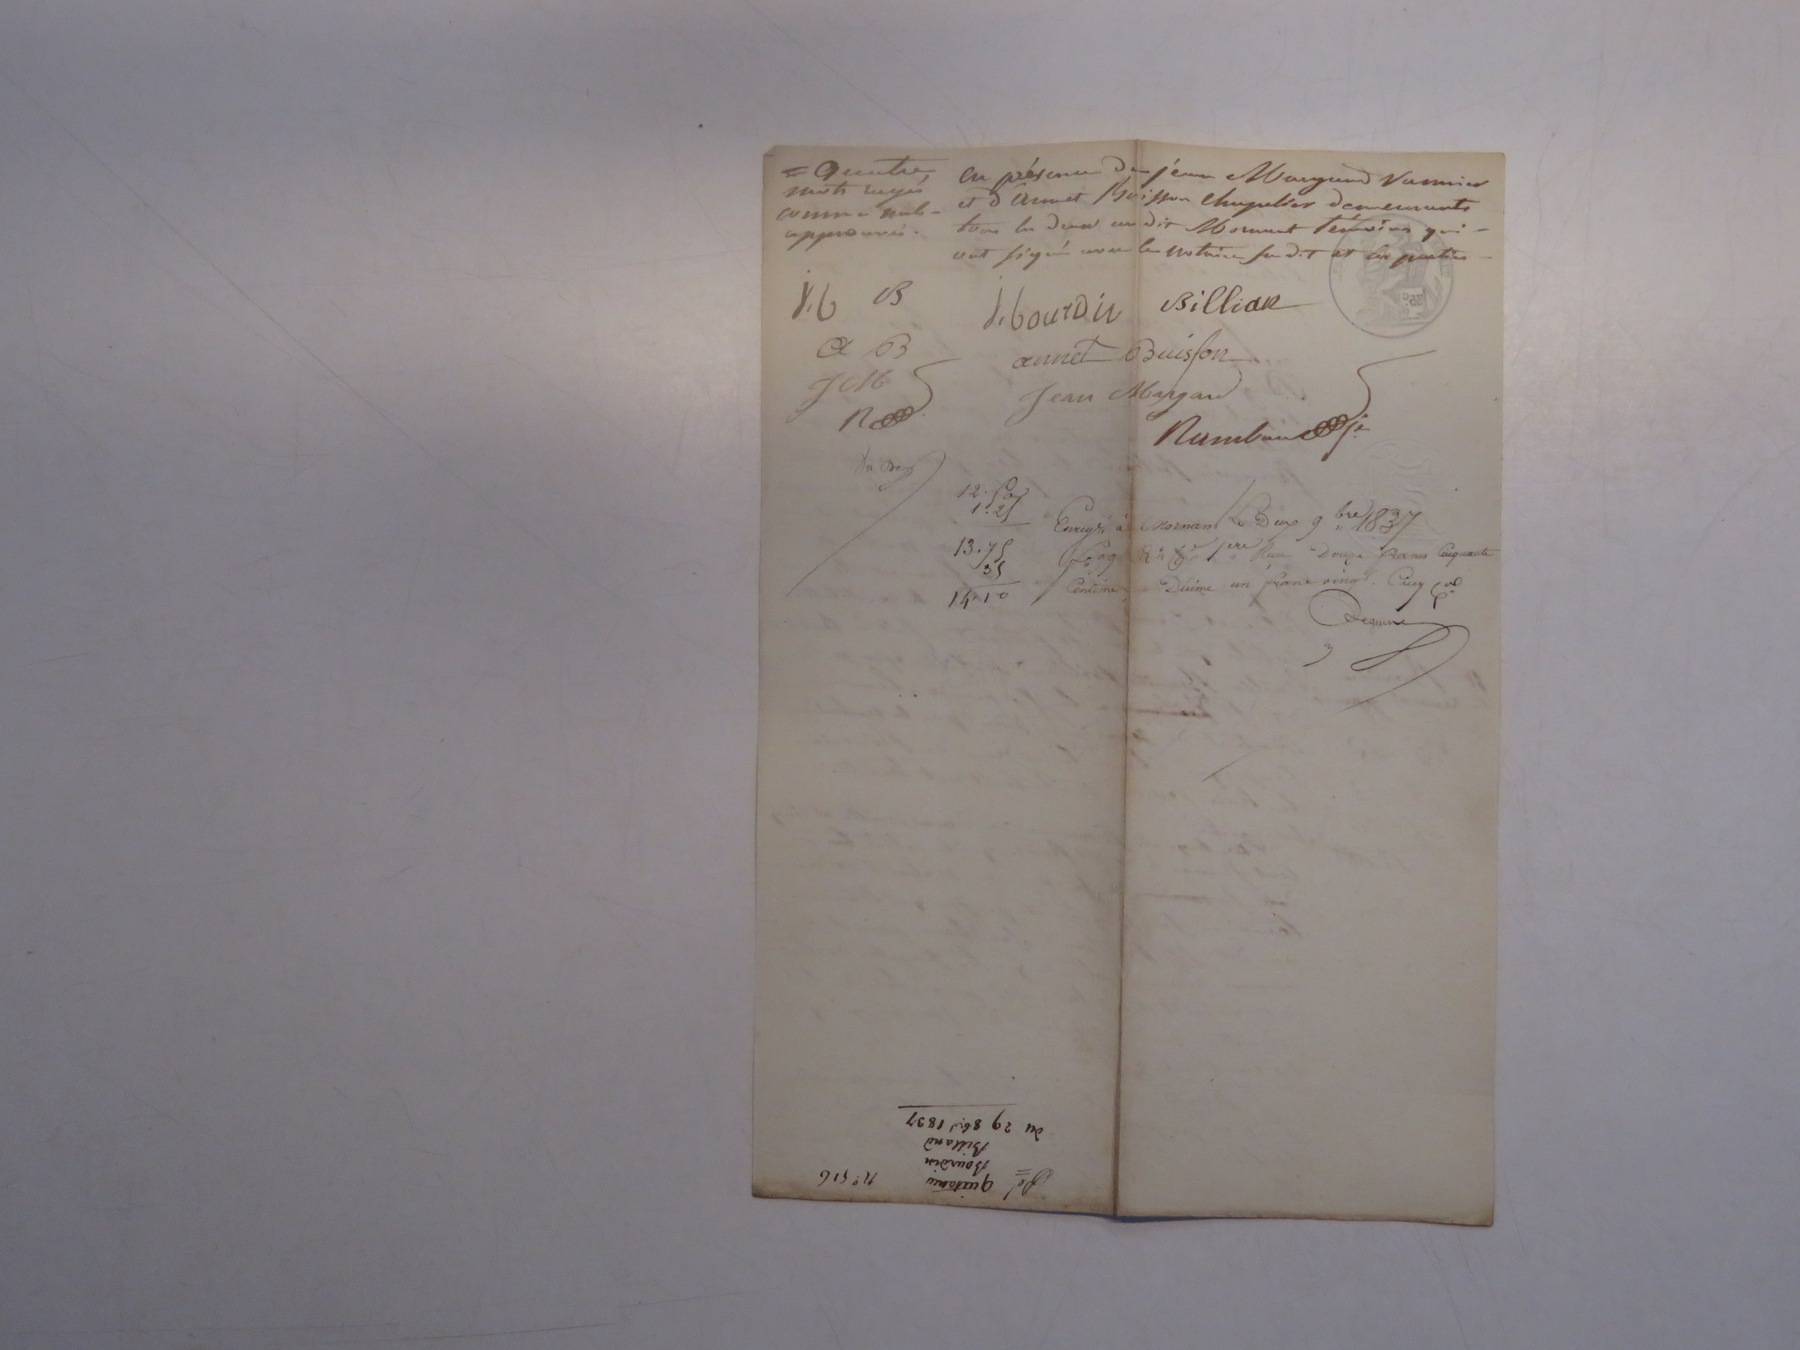 = Quatre
mots rayés
comme nuls
approuvés.
en présence de jean Margand Vannier
et d'annet Buisson chapelier demeurants
tous les deux audit Mornant Témoins qui
ont signé avec le notaire susdit et les parties
J.b B
j.bourdin Billian
a B
annet Buisson
J M
Jean Margand
R
12.50
1.25
13.75
35
14.10
Enregé à Mornant Le Deux 9bre 1837
Fo 1ere Case Douze francs Cinquante
Centimes Décime un franc vingt Cinq Ces
nº 516
quittance
Bourdin
Billand
du 29 8bre 1837